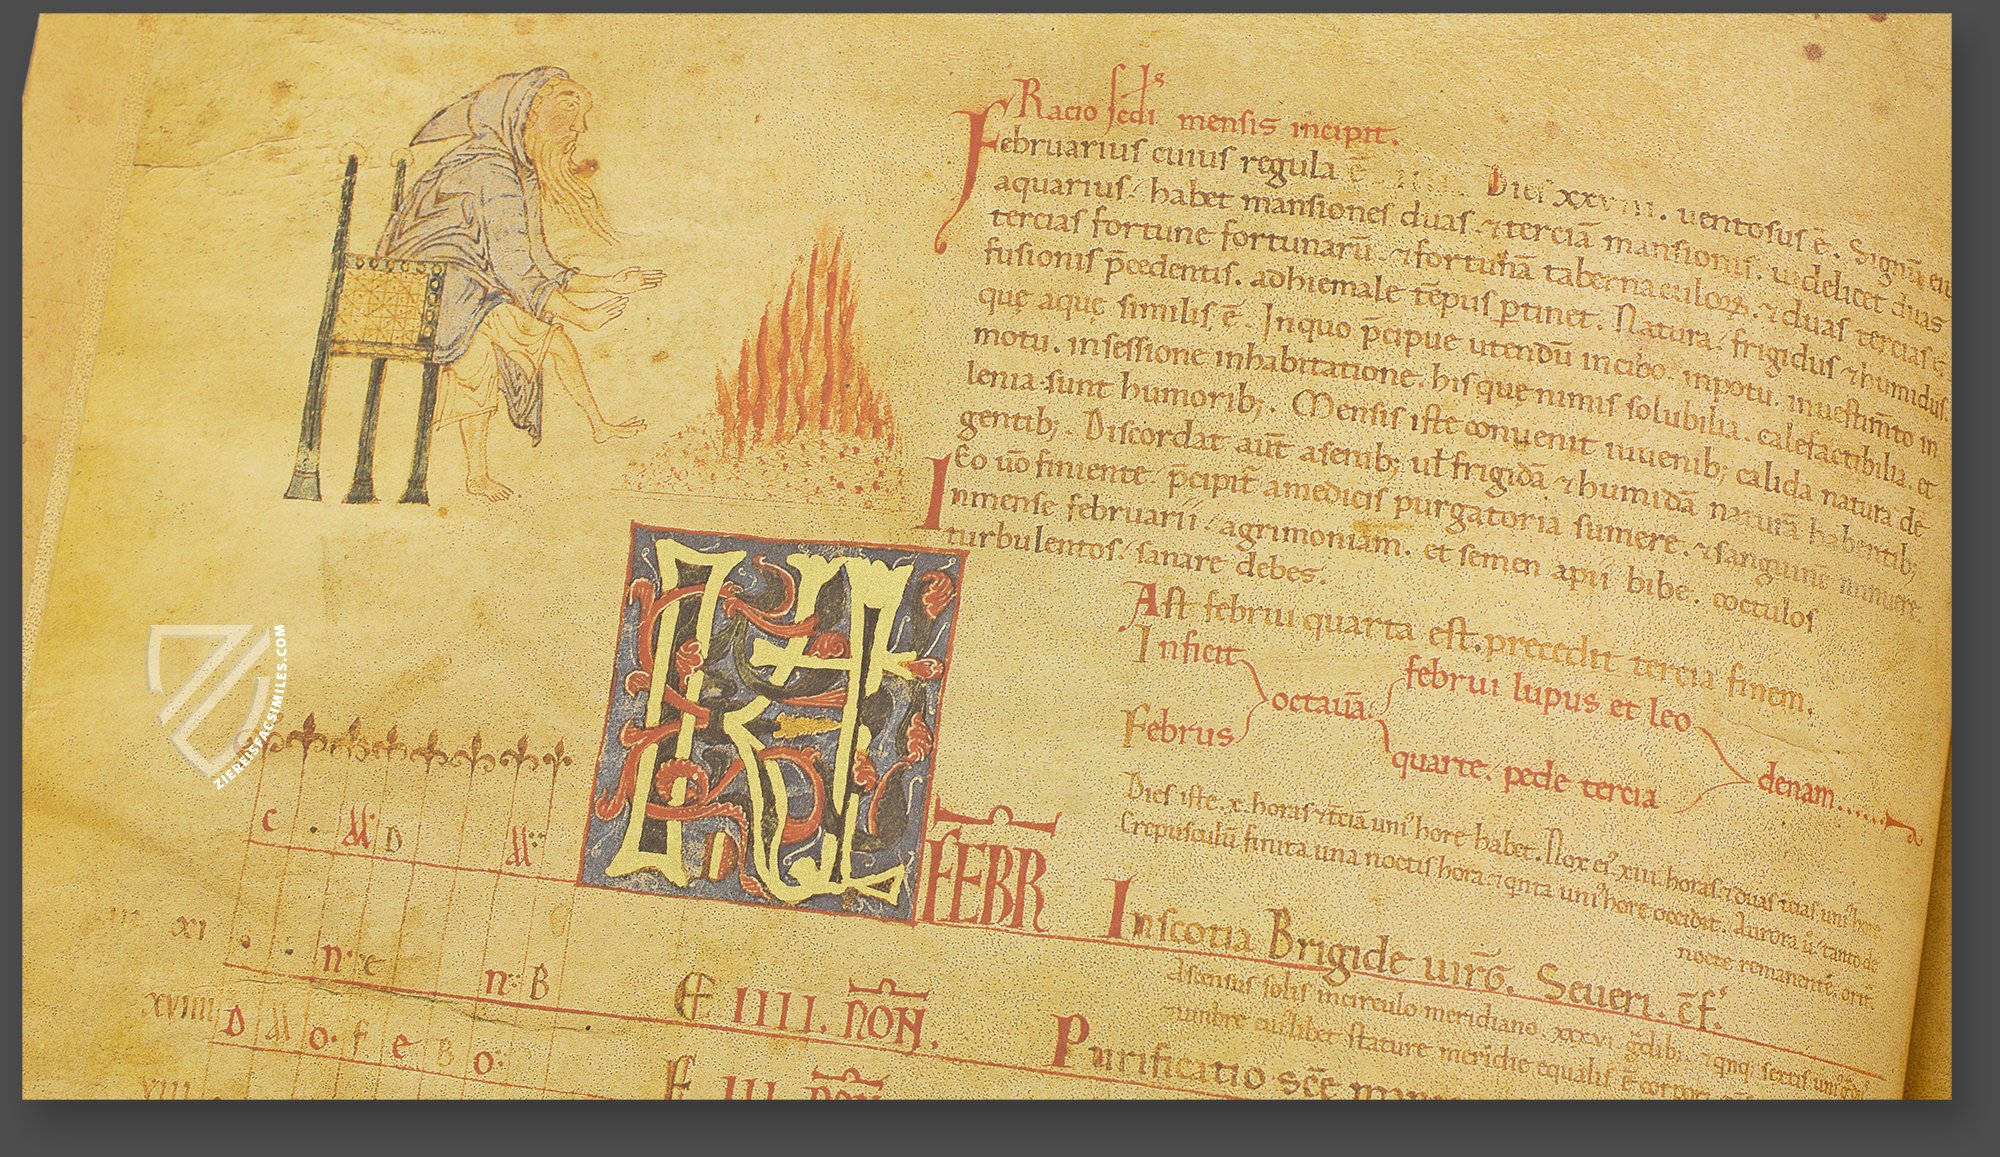 Racio scd̄i mensis incipit.
Februarius cuius regula ē Dies xxviii. uentosus ē. Signū eiꝰ
aquarius. habet mansiones duas. ⁊ terciā mansionis. uidelicet duas
tercias fortune fortunarū. ⁊ fortunā tabernaculoꝝ. ⁊ duas tercias ē
fusionis p̄cedentis. ad hiemale tēpus ꝑtinet. Natura. frigidus ⁊ humidus.
quę aquę similis ē. In quo p̄cipue utendū in cibo. in potu. in uestim̄to in
motu. in sessione in habitatione. his quę nimis solubilia. calefactibilia. et
lenia sunt humorib;. Mensis iste conuenit iuuenib; calida natura de
gentib;. Discordat aūt a senib; ul̄ frigidā ⁊ humidā naturā habentib;
Eo ūo finiente. p̄cipit̄ a medicis purgatoria sumere. ⁊ sanguinē minuere.
In mense februarii. agrimoniam. et semen apii bibe. coctulos
turbulentos. sanare debes.
Ast februi quarta est. precedit tercia finem.
Inficit
Februs
octauā
februi lupus et leo
quarte. pede tercia
denam......
Dies iste. x. horas ⁊ t̄ciā uniꝰ hore habet. Nox eiꝰ. xiii. horas. ⁊ duas t̄cias uniꝰ hore
Crepusculū finita una noctis hora. ⁊ qīnta uniꝰ hore occidit. Aurora ū. tanto de
nocte remanente. orit̄.
KL
FEBR
C . M D M
xi . . n e n B
E IIII. NON.
In scotia Brigide uirḡ. Seueri. c̄f.
Ascensus solis in circulo meridiano. xxxvi. gdib;. ⁊ qnq; sextis uniꝰ
⁊ umbre cuiꝰlibet stature meridie equalis ē corpori
xviiii D M o f e B o
F III NON
Purificatio sc̄e marie
viii
ZIEREISFACSIMILES.COM